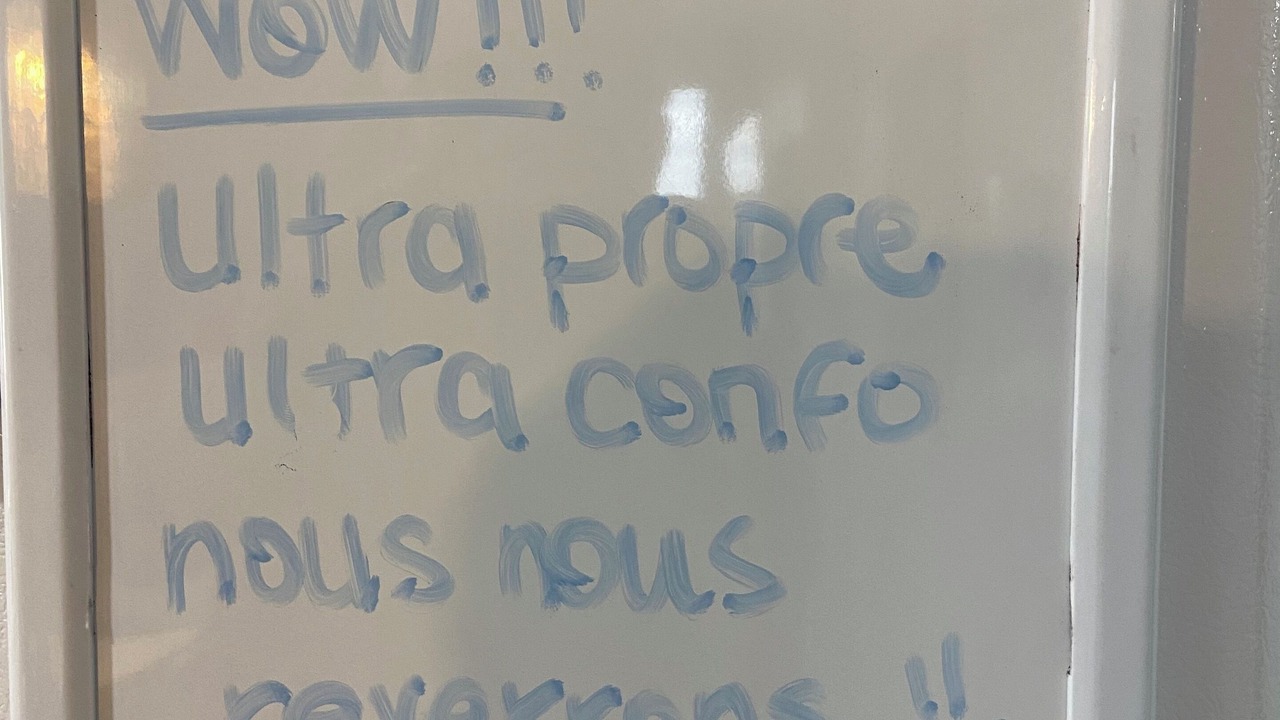 WOW!!!
Ultra propre
ultra confo
nous nous
reverrons !!